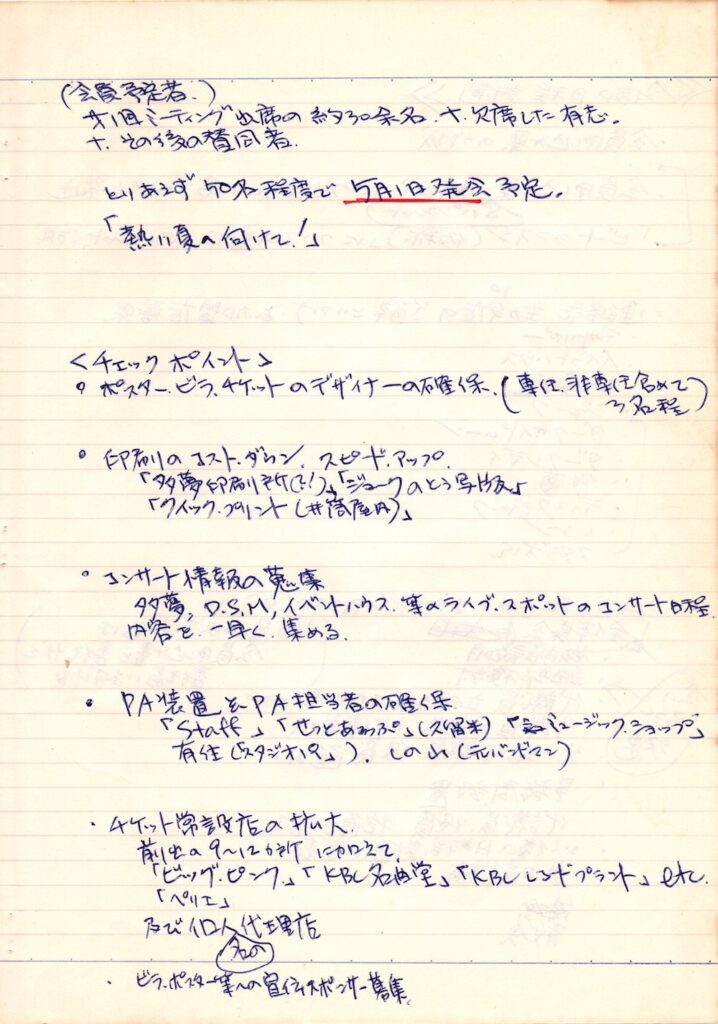 (会員予定者.)
第1回ミーティング出席の約30余名.+.欠席した有志。
+.その後の賛同者.
とりあえず50名程度で 5月1日発会予定。
「熱い夏へ向けて!」
<チェックポイント>
ポスター.ビラ.チケットのデザイナーの確保.(専任.非専任含めて
3名程)
印刷のコスト.ダウン.スピード.アップ.
「多夢印刷所(?!)」「ジョークのとう写版」
「クイック.プリント(井筒屋内)」
コンサート情報の蒐集
多夢,D.S.M,イベントハウス.等のライブ.スポットのコンサート日程.
内容を.一早く.集める.
PA装置とPA担当者の確保.
「Staff」「せっとあっぷ」(久留米)「ミュージック.ショップ」
有住(「スタジオパパ」).しのは(元バンドマン)
チケット常設店の拡大.
前出の9〜12か所に加えて,
「ビッグ.ピンク」「KBC名曲堂」「KBCレコードプラント」etc.
「ペリエ」
及び個人代理店
名の
ビラ.ポスター等への宣伝スポンサー募集.